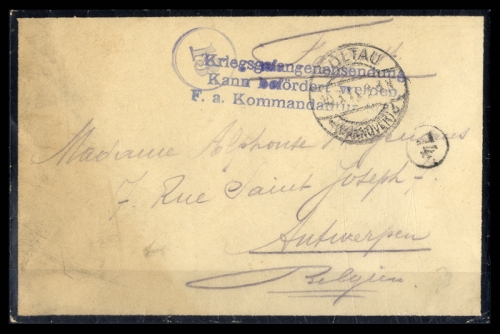 Kriegsgefangenensendung
Kann befördert werden
F. a. Kommandantur
SOLTAU
(HANNOVER)
Madame Alphonse
7. Rue Saint Joseph-
Antwerpen
Belgien.